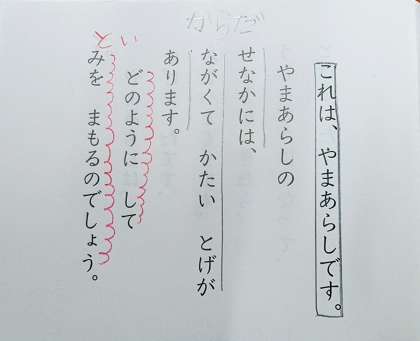 からだ
これは、やまあらしです。
やまあらしの
せなかには、
ながくて かたい とげが
あります。
どのように して
みを まもるのでしょう。
とい